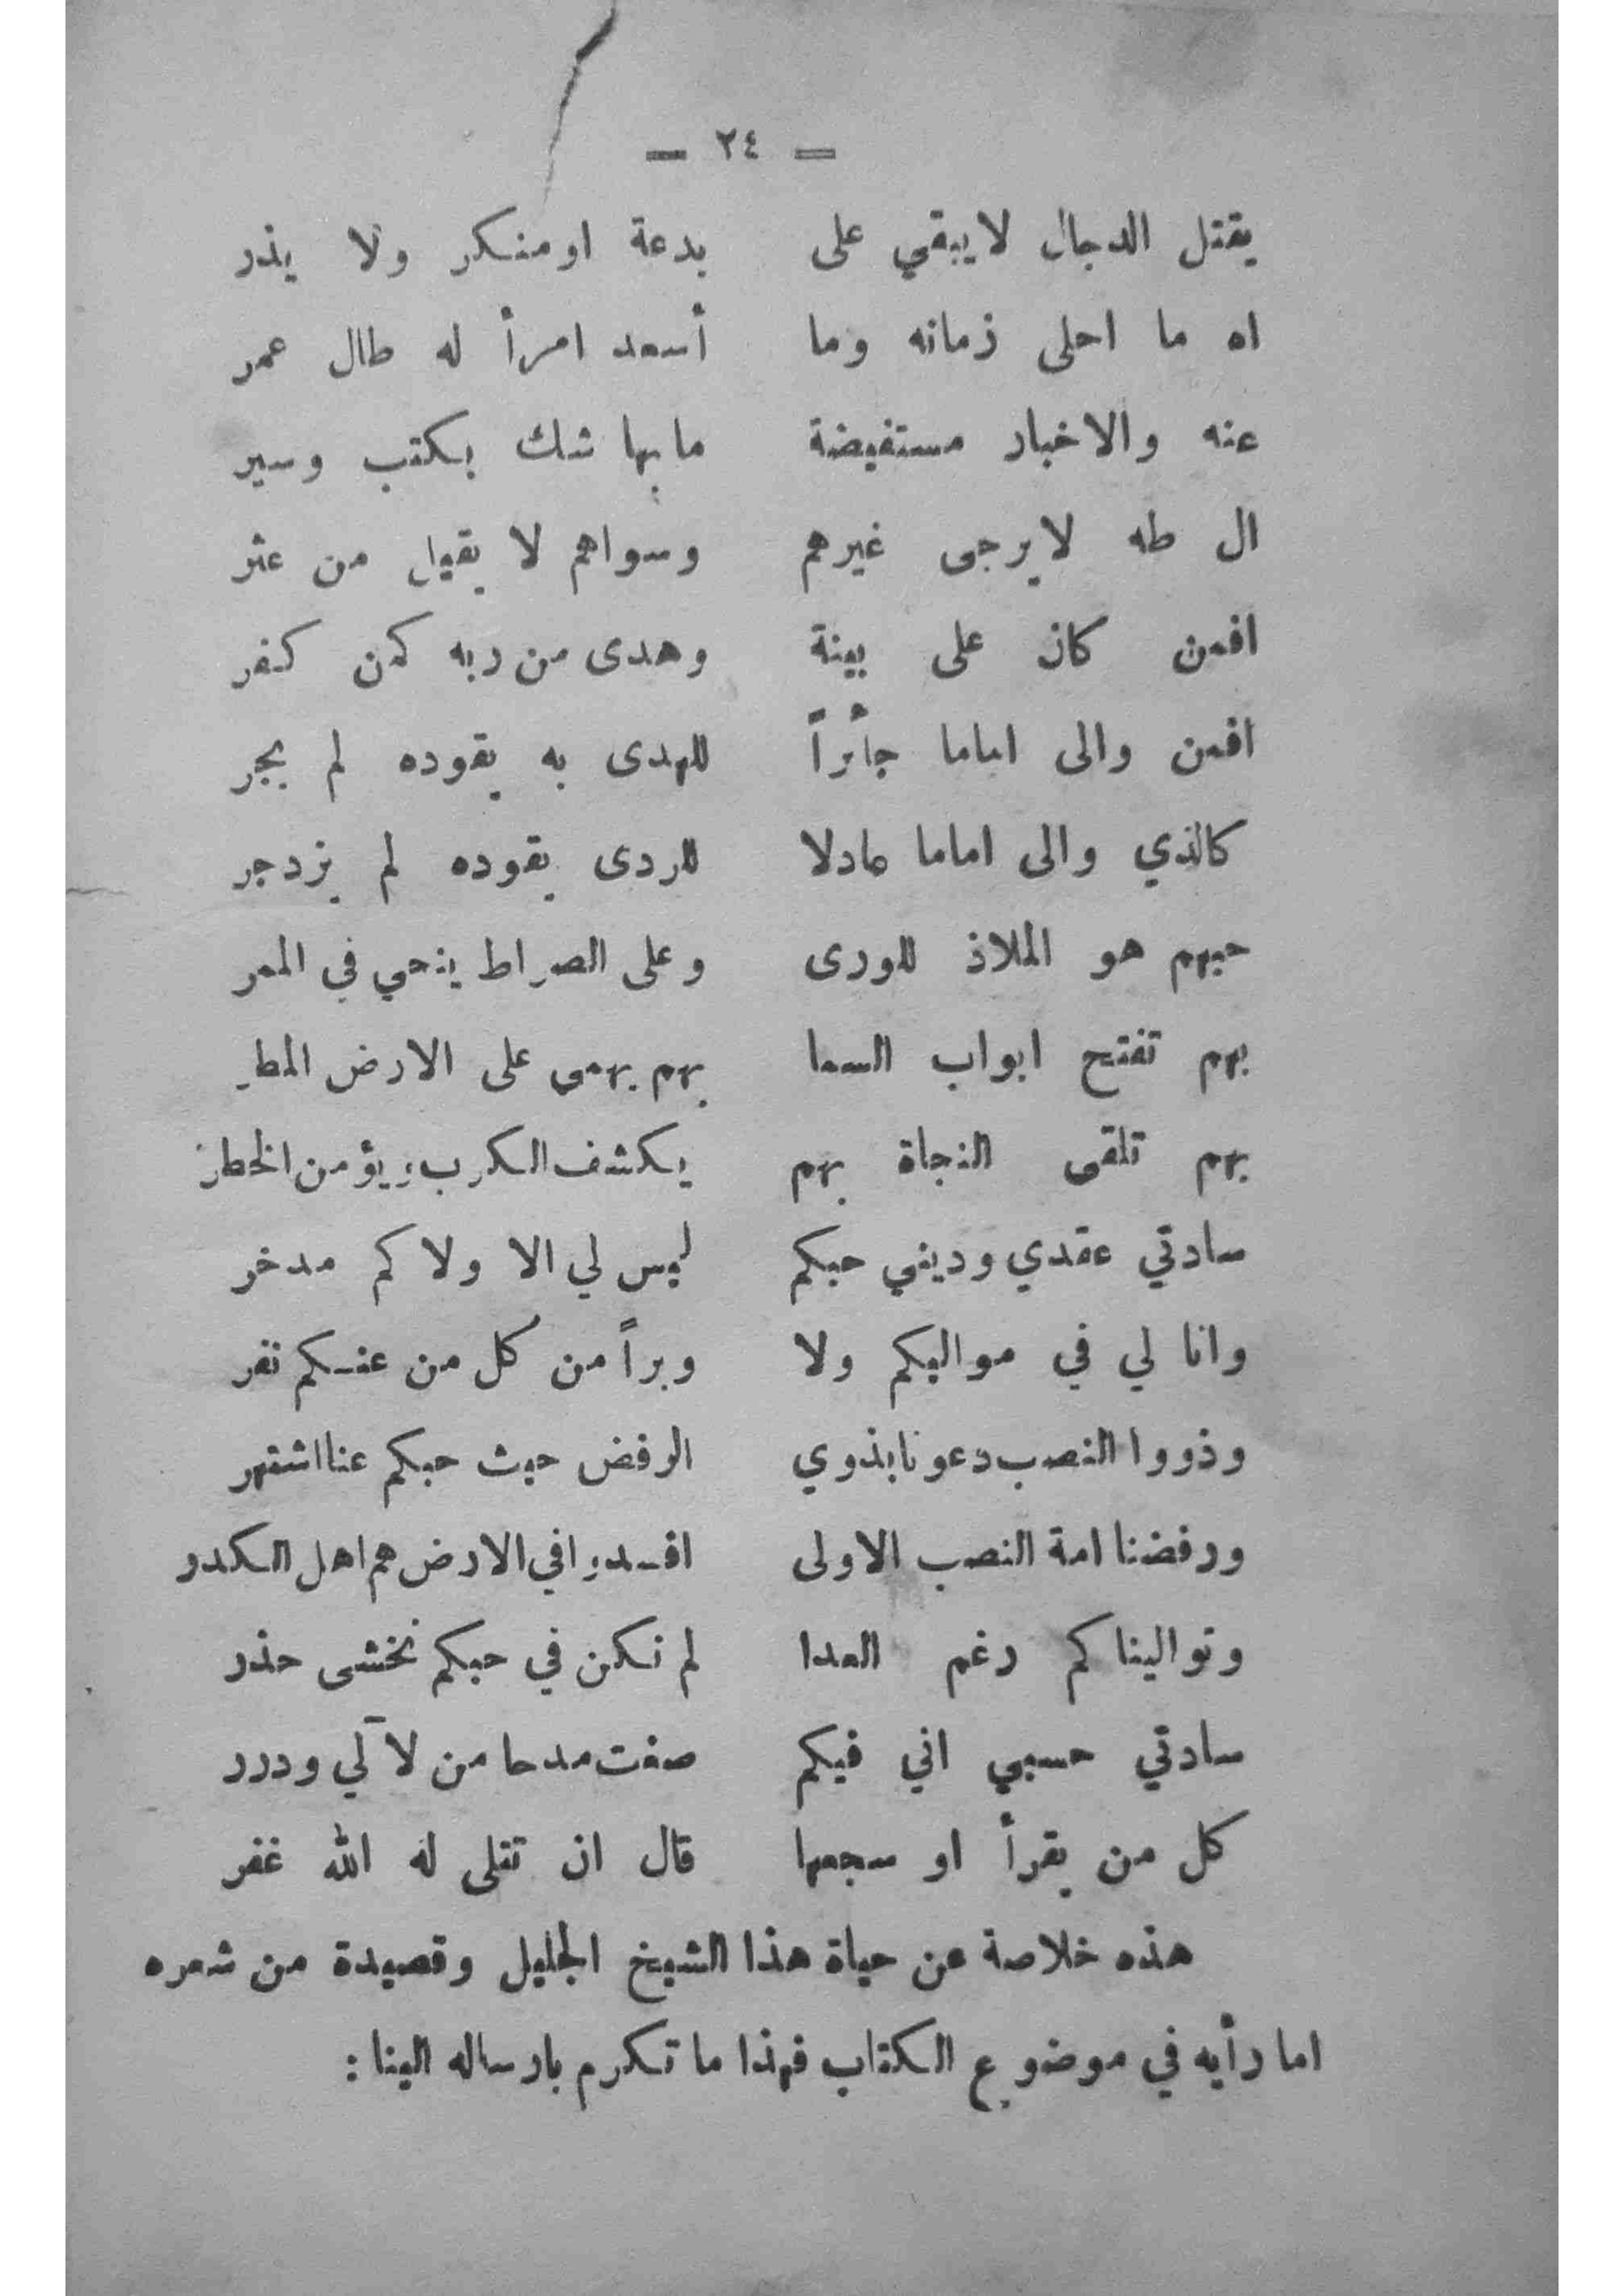 — ٢٤ —
يقتل الدجال لا يبقي على بدعة او منكر ولا يذر
اه ما احلى زمانه وما أسعد امرأ له طال عمر
عنه والاخبار مستفيضة ما بها شك بكتب وسير
ال طه لا يرجى غيرهم وسواهم لا يقيل من عثر
افمن كان على بينة وهدى من ربه كمن كفر
افمن والى اماما جأئراً للهدى به يقوده لم يجر
كالذي والى اماما عادلا للردى يقوده لم يزدجر
حبهم هو الملاذ للورى وعلى الصراط ينحي في الممر
بهم تفتح ابواب السما بهم يهمى على الارض المطر
بهم تلقى النجاة بهم يكشف الكرب ويؤمن الخطر
سادتي عقدي وديني حبكم ليس لي الا ولاكم مدخر
وانا لي في مواليكم ولا وبرأً من كل من عنكم نفر
وذووا النصب دعونا بذوي الرفض حيث حبكم عنا اشتهر
ورفضنا امة النصب الاولى افسدوا في الارض هم اهل الكدر
وتوالينا كم رغم العدا لم نكن في حبكم نخشى حذر
سادتي حسبي اني فيكم صغت مدحا من لآلي ودرر
كل من يقرأ او سجمها قال ان تتلى له الله غفر
هذه خلاصة عن حياة هذا الشيخ الجليل وقصيدة من شعره
اما رأيه في موضوع الكتاب فهذا ما تكرم بارساله الينا :